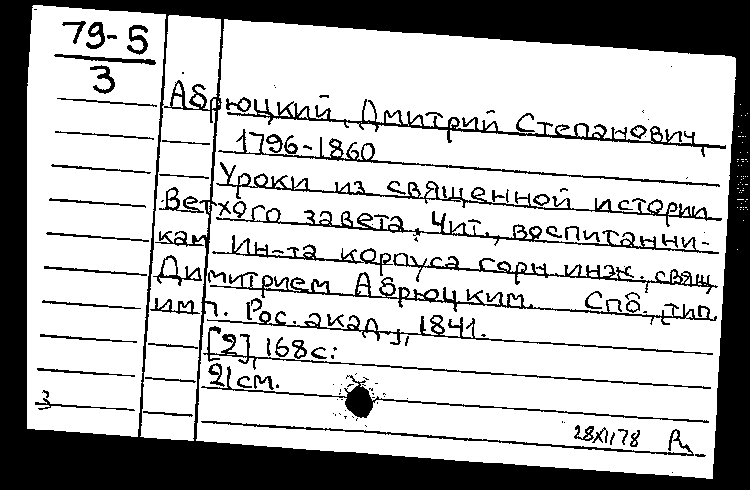 79-5
3
Абрюцкий, Дмитрий Степанович,
1796-1860
Уроки из священной истории
Ветхого завета, Чит., воспитанни-
кам Ин-та корпуса горн. инж., свящ.
Димитрием Абрюцким. Спб., тип.
имп. Рос. акад-, 1841.
[2], 168 с.
21 см.
3
28XI178